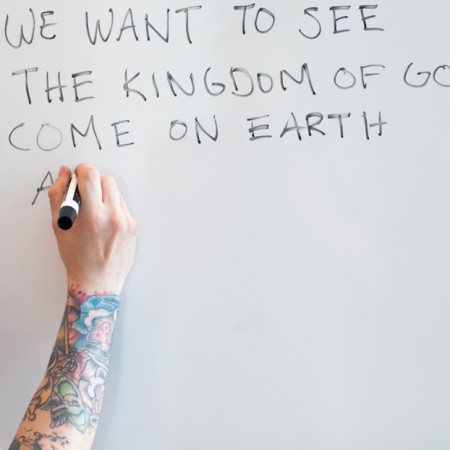 WE WANT TO SEE
THE KINGDOM OF GO
COME ON EARTH
A